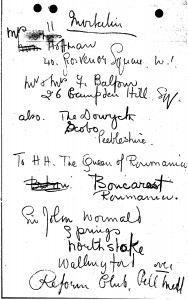 Mrs
Hofman
40. Grosvenor Square. W.1
Mr & Mrs F. Balfour
26 Campden Hill. Sq.
also. The Dawyck
Scobo
Peebleshire.
To H.H. The Queen of Roumania
Bucarest
Roumania.
Sir John Wormald
Springs
North Stoke
Wallingford
over
Reform Club, Pall Mall